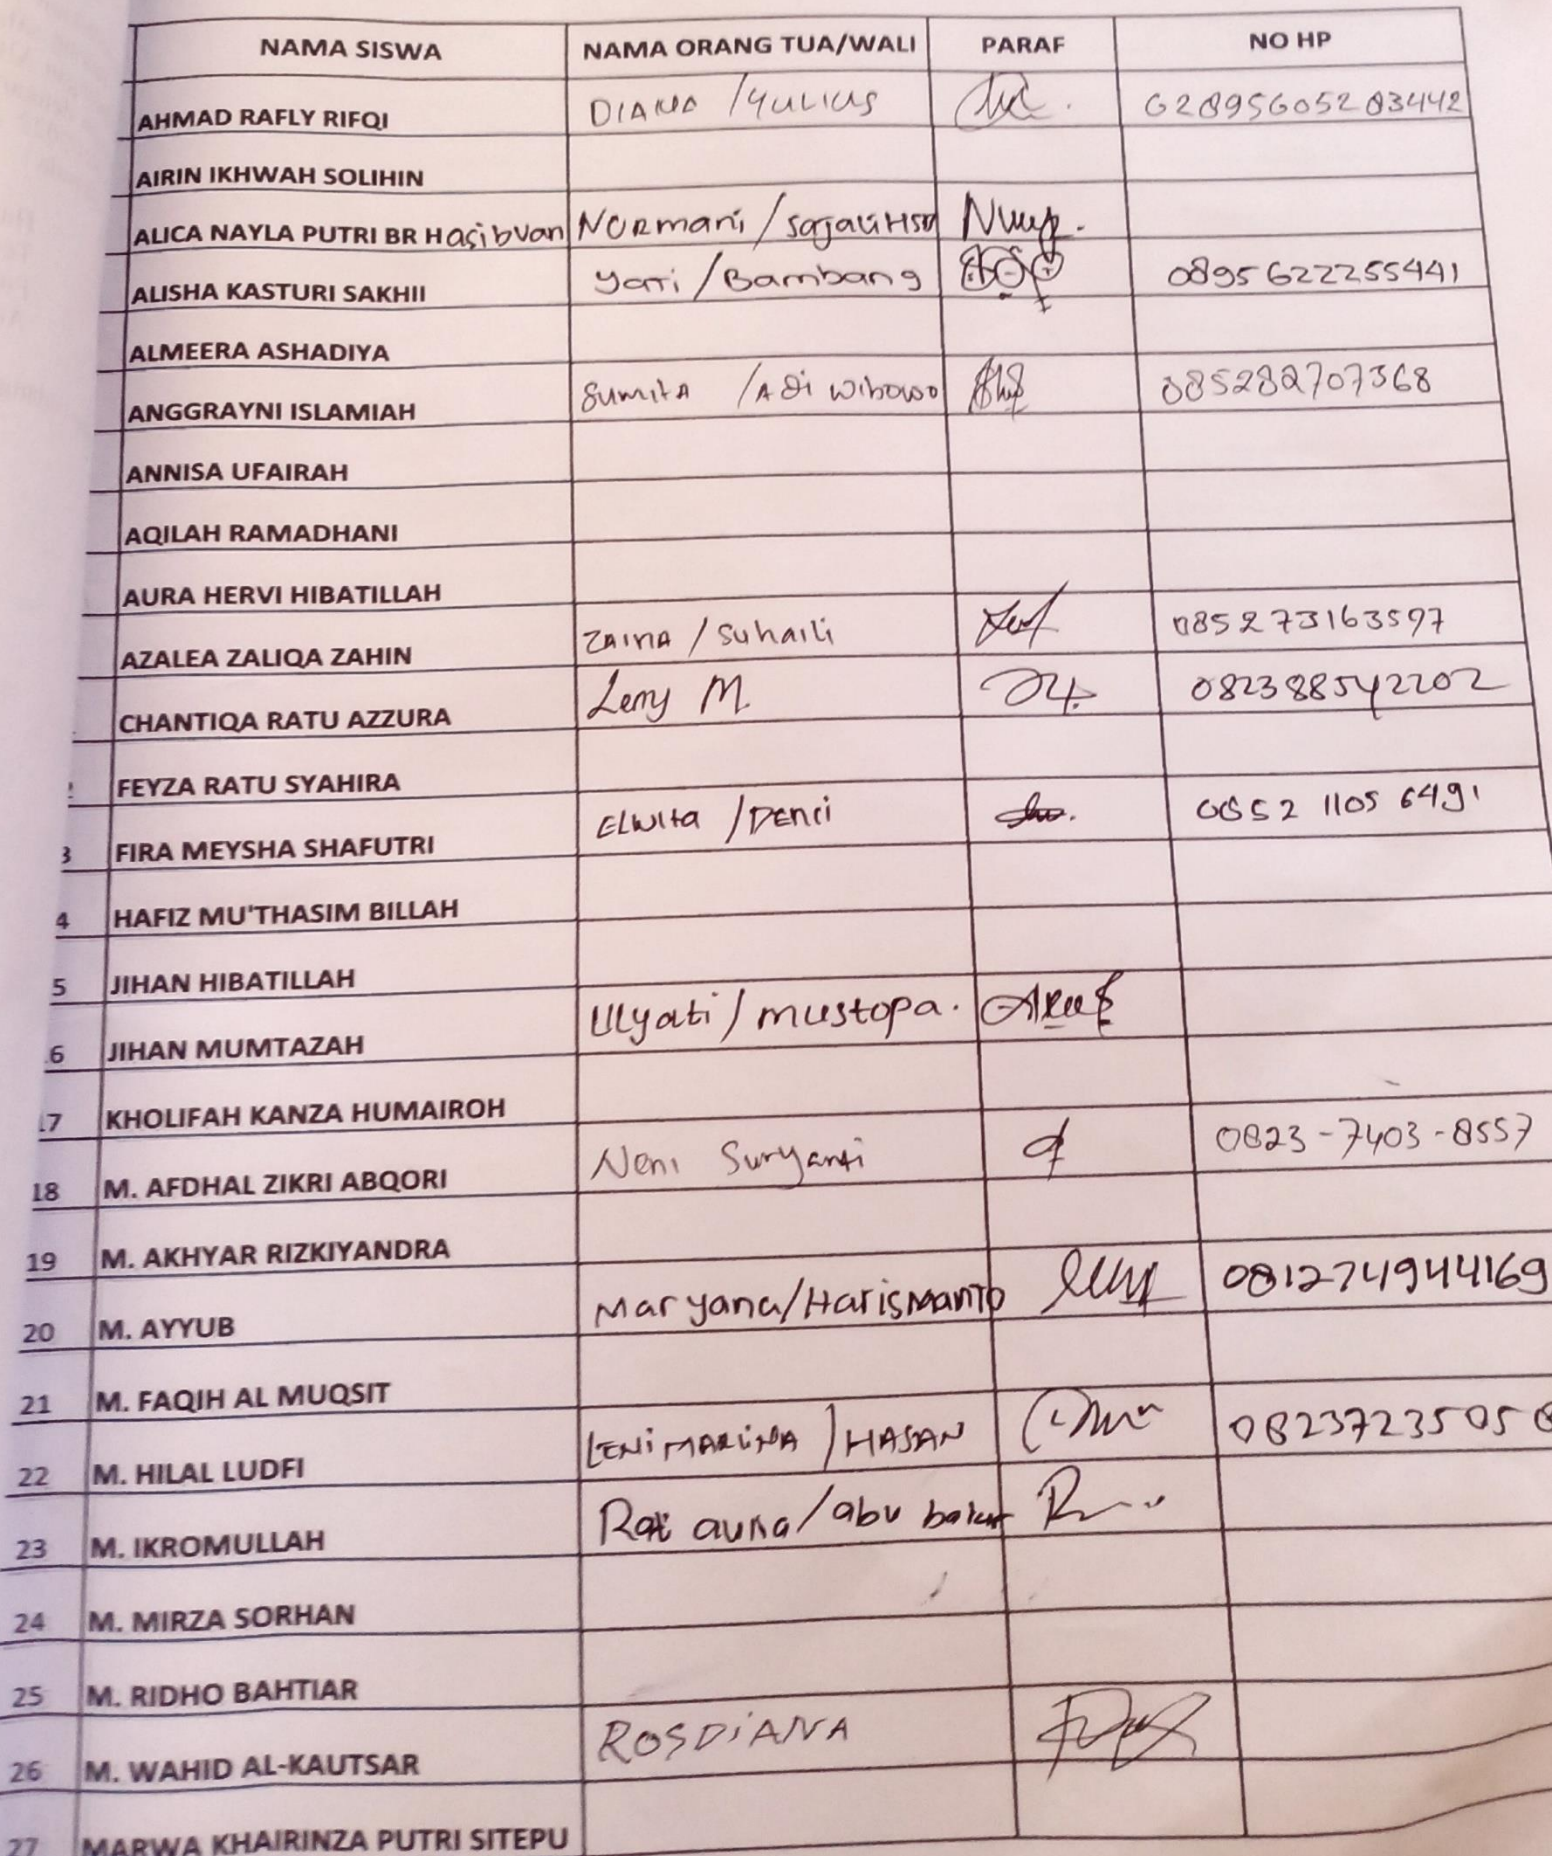 NAMA SISWA NAMA ORANG TUA/WALI PARAF NO HP
AHMAD RAFLY RIFQI DIANA /YULIUS 6289560528 03442
AIRIN IKHWAH SOLIHIN
ALICA NAYLA PUTRI BR Hasibuan Normani / Sajali HSB
ALISHA KASTURI SAKHII Yati / Bambang 0895622255441
ALMEERA ASHADIYA
ANGGRAYNI ISLAMIAH Sumita /Adi wibowo 085282707368
ANNISA UFAIRAH
AQILAH RAMADHANI
AURA HERVI HIBATILLAH
AZALEA ZALIQA ZAHIN ZAINA / Suhaili 085273163597
CHANTIQA RATU AZZURA Leny M. 082388542202
FEYZA RATU SYAHIRA
3 FIRA MEYSHA SHAFUTRI Elwita / Denci 0852 1105 6491
4 HAFIZ MU'THASIM BILLAH
5 JIHAN HIBATILLAH
6 JIHAN MUMTAZAH Ulyati / mustopa.
17 KHOLIFAH KANZA HUMAIROH
18 M. AFDHAL ZIKRI ABQORI Neni Suryanti 0823-7403-8557
19 M. AKHYAR RIZKIYANDRA
20 M. AYYUB Maryana/Harismanto 081274944169
21 M. FAQIH AL MUQSIT
22 M. HILAL LUDFI LENI MARLINA / HASAN 0823723505
23 M. IKROMULLAH auna/abu bakar
24 M. MIRZA SORHAN
25 M. RIDHO BAHTIAR
26 M. WAHID AL-KAUTSAR ROSDIANA
27 MARWA KHAIRINZA PUTRI SITEPU